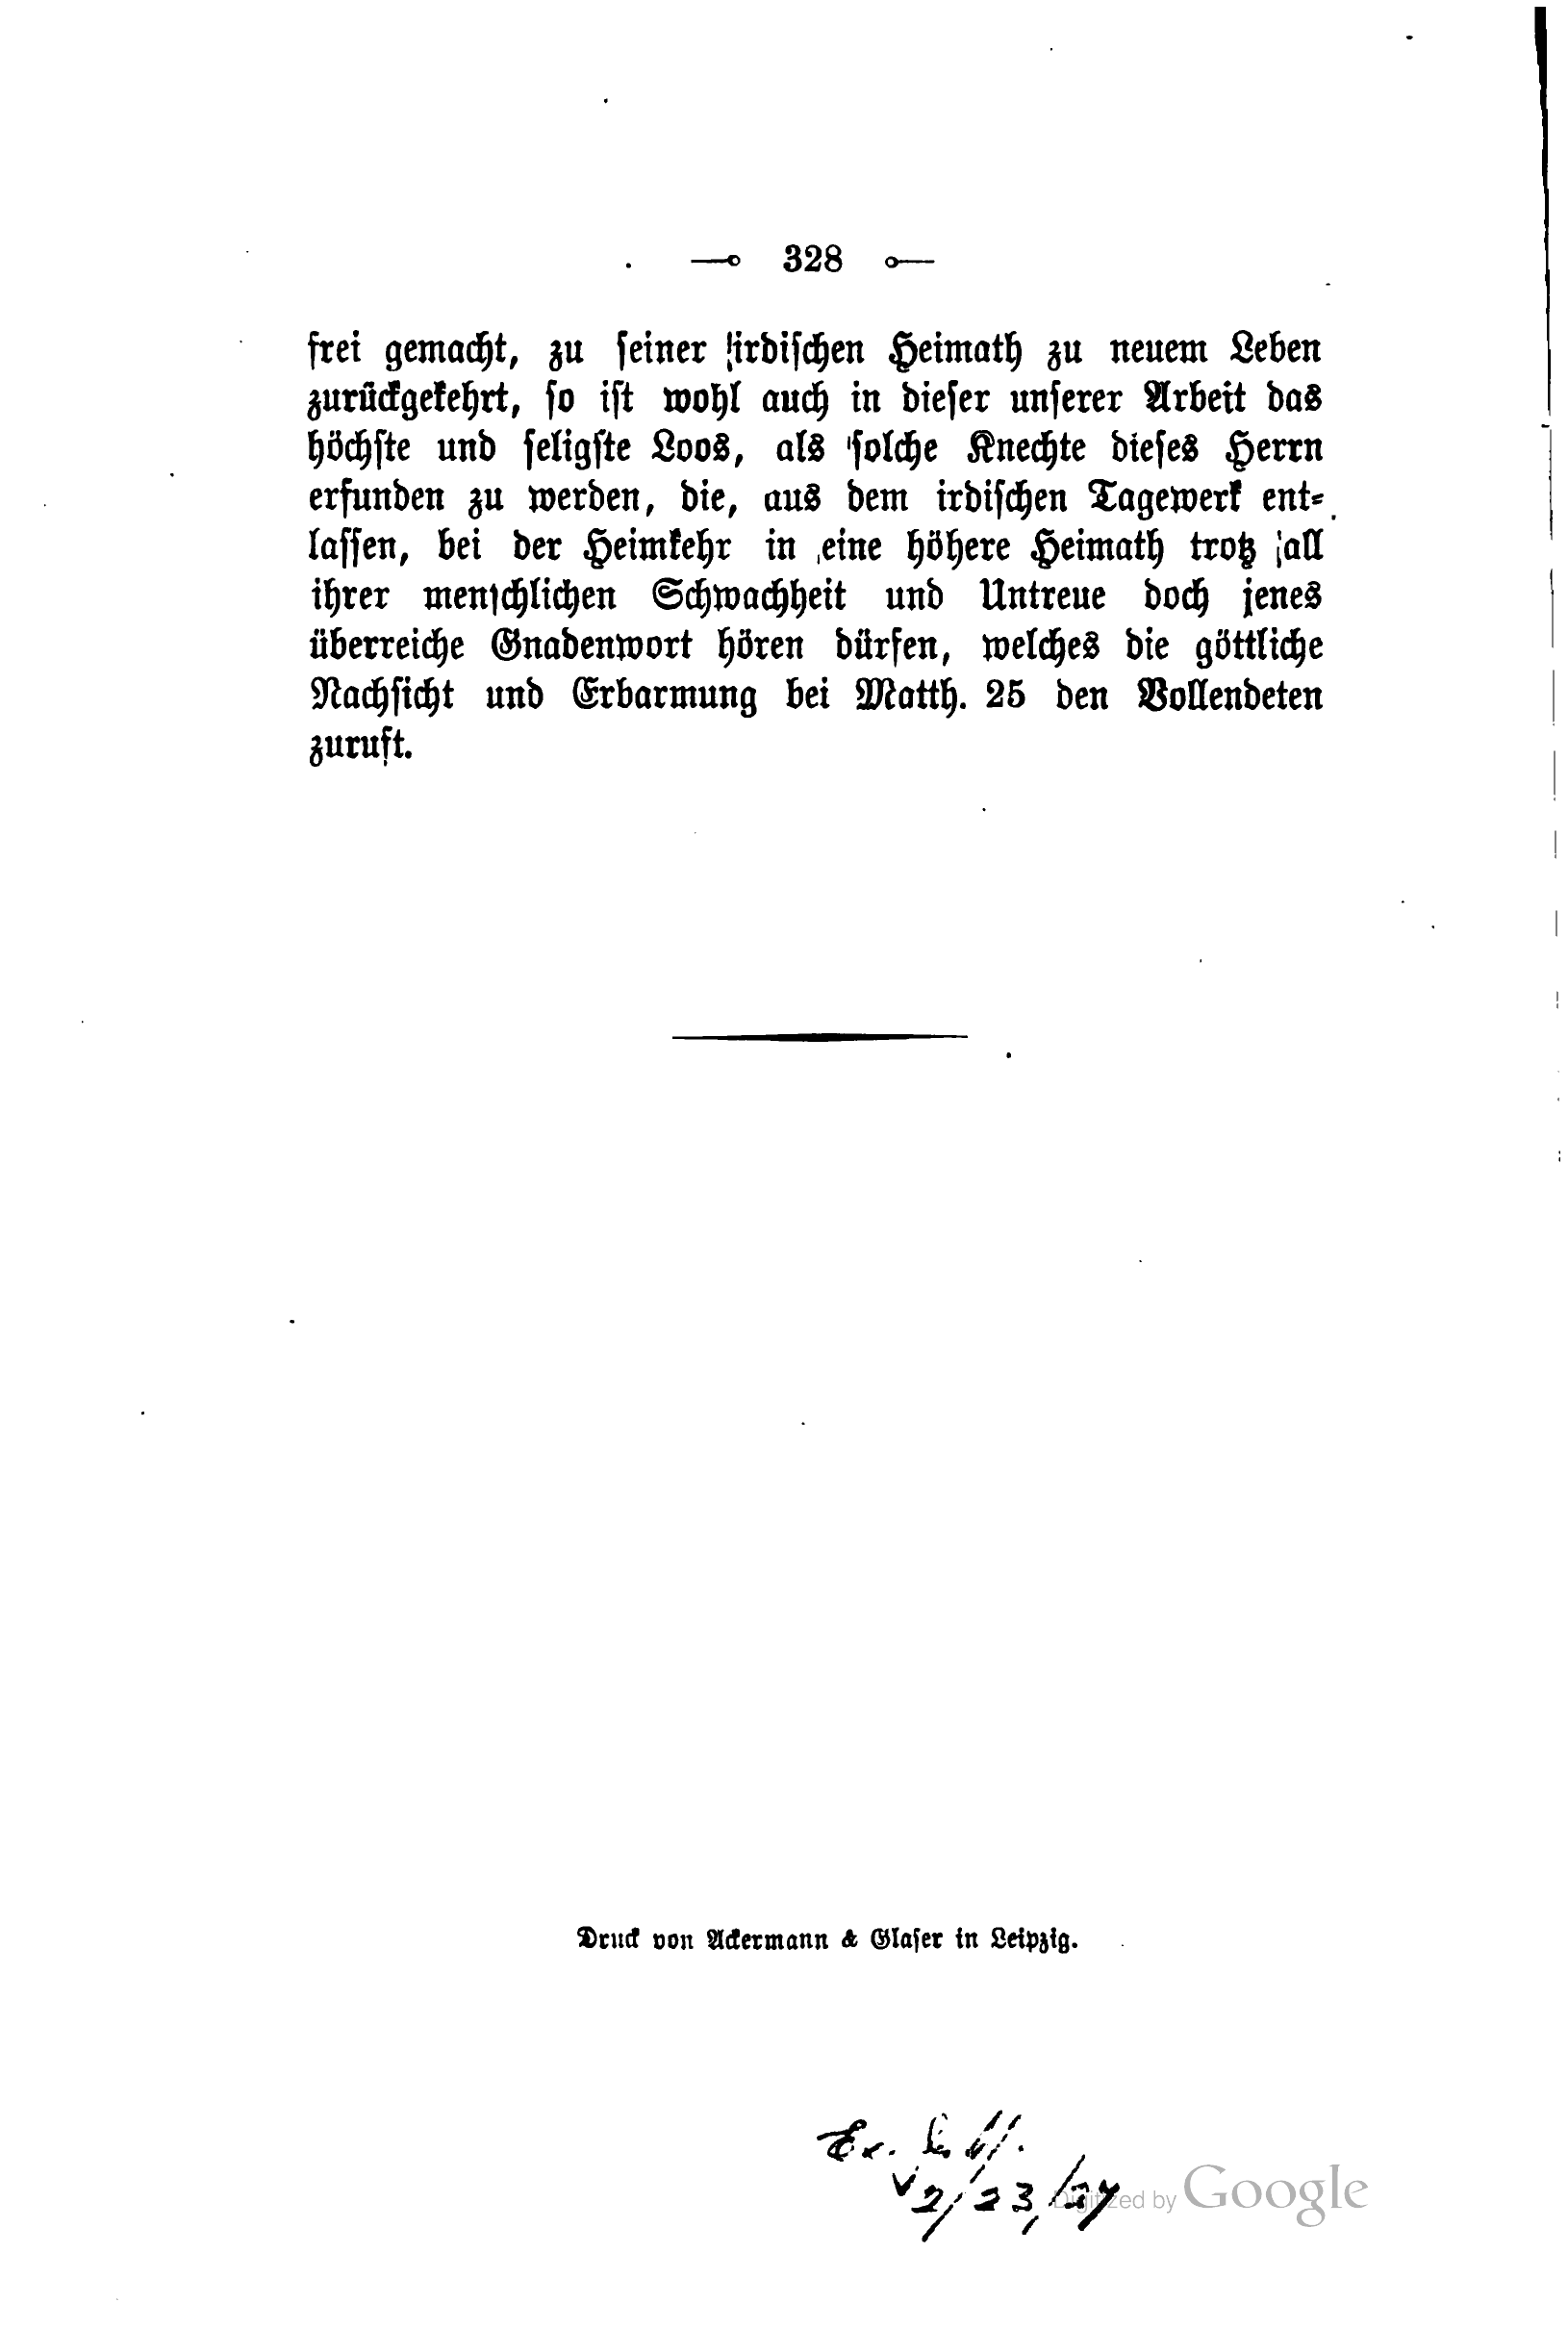 328
frei gemacht, zu seiner irdischen Heimath zu neuem Leben
zurückgekehrt, so ist wohl auch in dieser unserer Arbeit das
höchste und seligste Loos, als solche Knechte dieses Herrn
erfunden zu werden, die, aus dem irdischen Tagewerk ent=
lassen, bei der Heimkehr in eine höhere Heimath trotz all
ihrer menschlichen Schwachheit und Untreue doch jenes
überreiche Gnadenwort hören dürfen, welches die göttliche
Nachsicht und Erbarmung bei Matth. 25 den Vollendeten
zuruft.
Druck von Ackermann & Glaser in Leipzig.
Ex.
2/23/
Digitized by Google